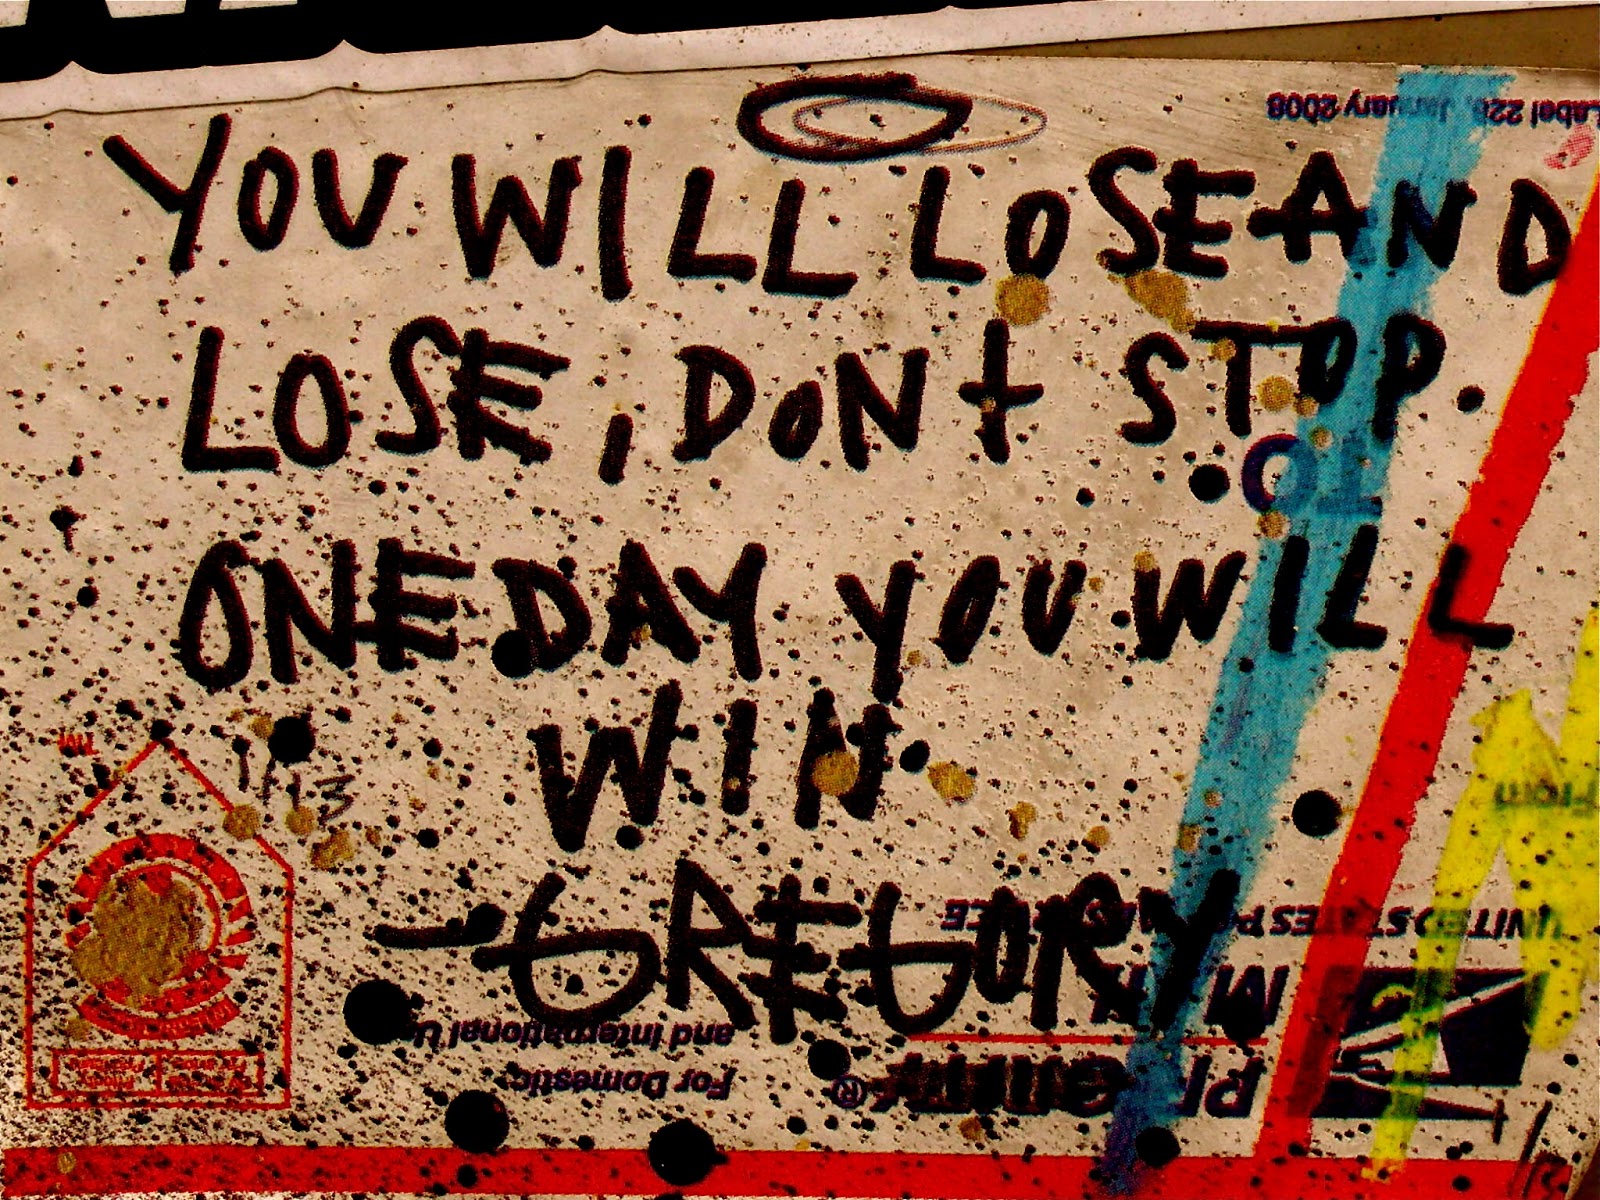 YOU WILL LOSE AND
LOSE, DONt STOP.
ONE DAY YOU WILL
WIN
-GREGORY
Label 228, January 2008
TO
From
UNITED STATES POSTAL SERVICE
For Domestic
and International U
1/13
TM